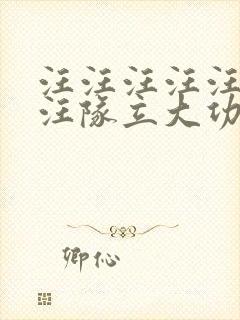 汪汪汪汪汪
汪隊立大功
卿伈